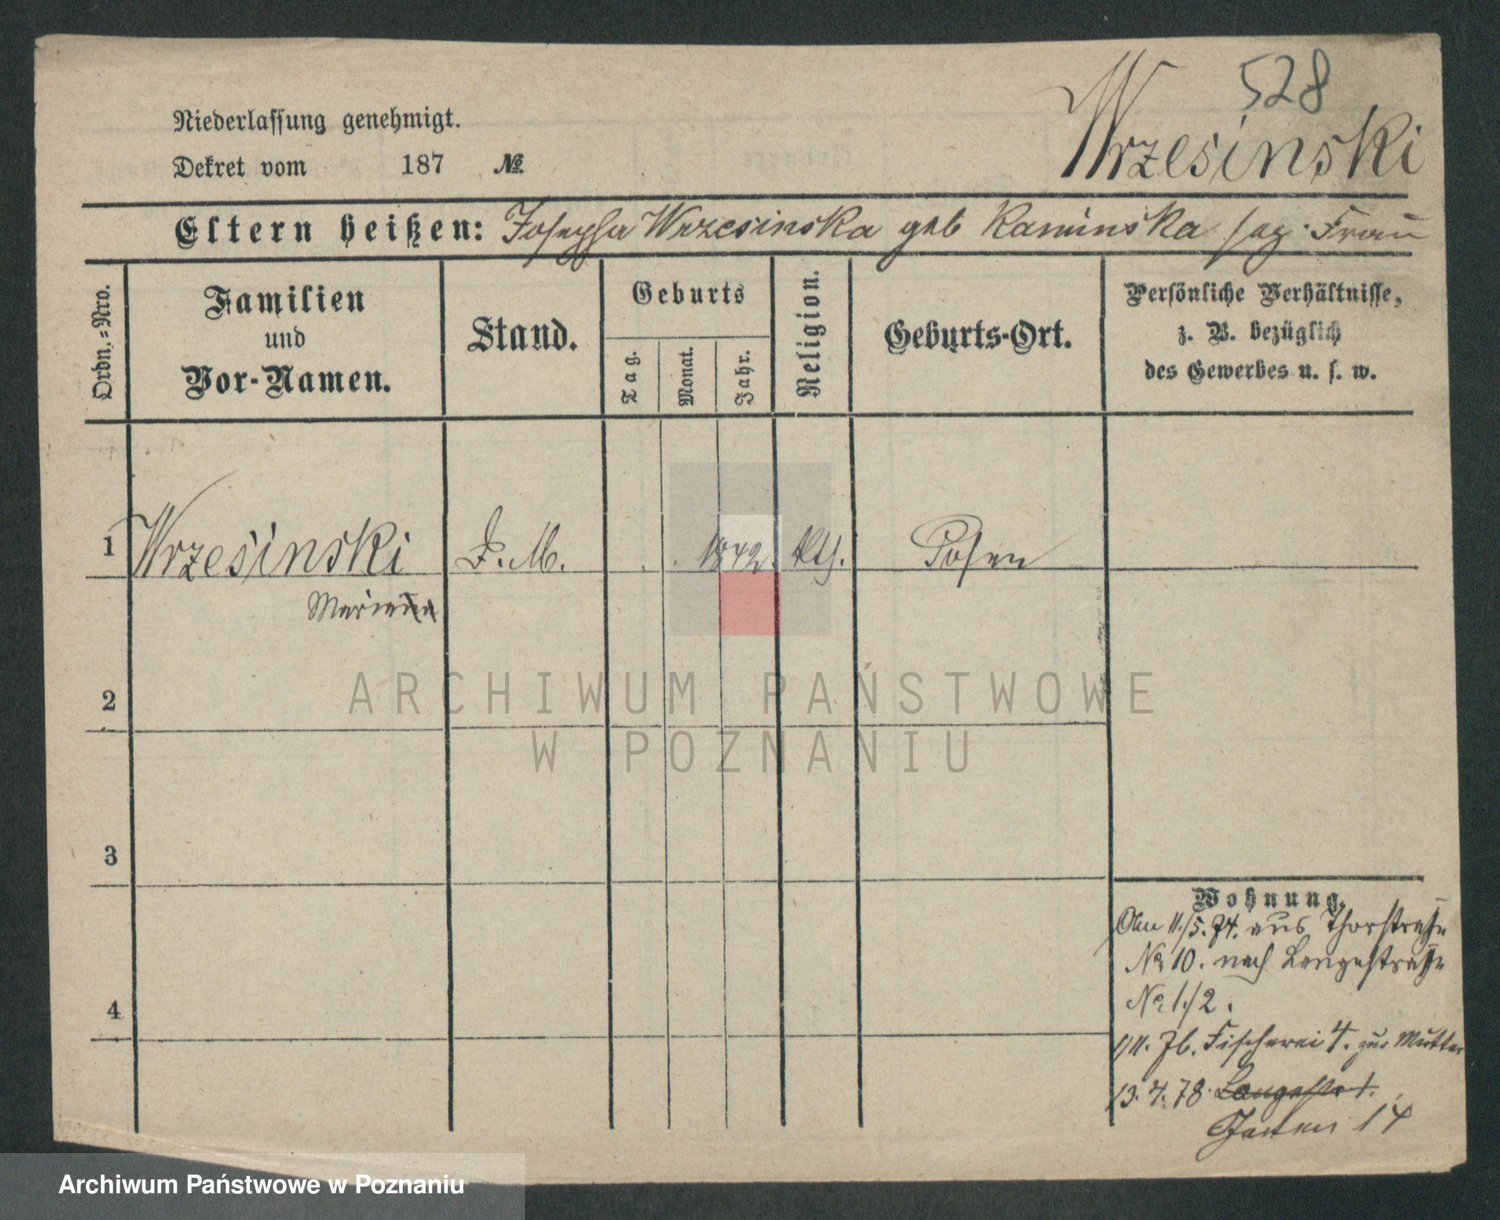 528
Wrzesinski
Niederlassung genehmigt.
Dekret vom 187 №
Eltern heißen: Josepha Wrzesinska geb Kaminska sep. Frau
Ordn.=Nro.
Familien
und
Vor-Namen.
Stand.
Geburts
Tag.
Monat.
Jahr.
Religion.
Geburts-Ort.
Persönliche Verhältnisse,
z. B. bezüglich
des Gewerbes u. s. w.
1 Wrzesinski D. M. 1842. kth. Posen
2
3
4
Wohnung.
Am 11./5. 74. aus Thorstraße
No 10. nach Langestraße
No 1./2.
Fischerei 4. zur Mutter
13.4.78. Langestr 1.
14
ARCHIWUM PAŃSTWOWE
W POZNANIU
Archiwum Państwowe w Poznaniu